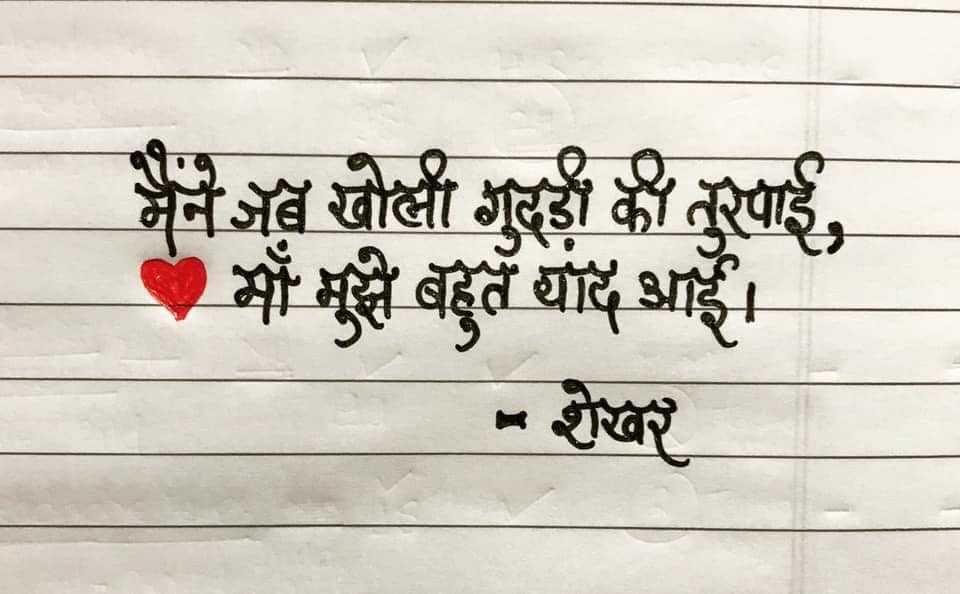 मैंने जब खोली गुदडी की तुरपाई,
माँ मुझे बहुत यांद आई।
- शेखर